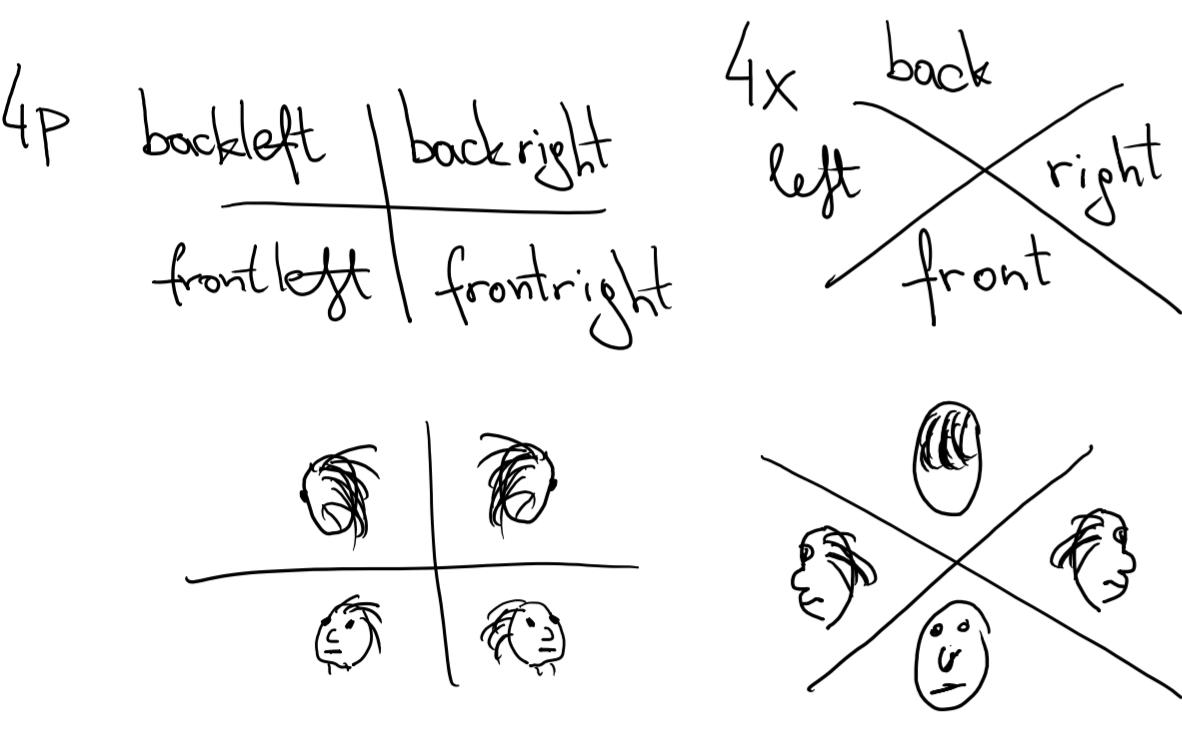 4P backleft backright
frontleft frontright
4x back
left right
front